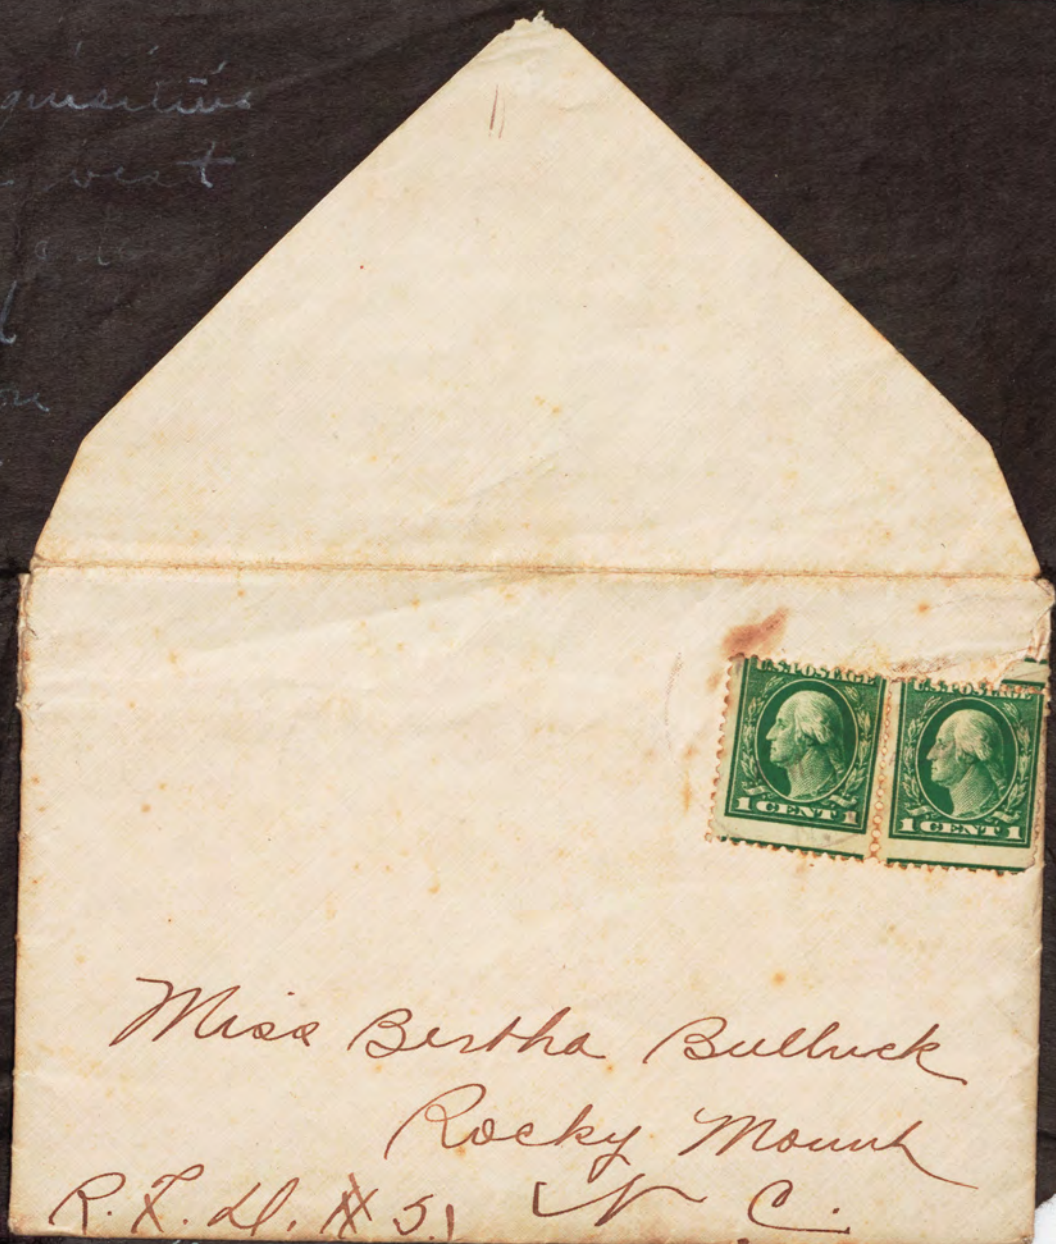 west
U.S. POSTAGE
1 CENT 1
U.S. POSTAGE
1 CENT 1
Miss Bertha Bulluck
Rocky Mount
R.F.D. # 5. N C.